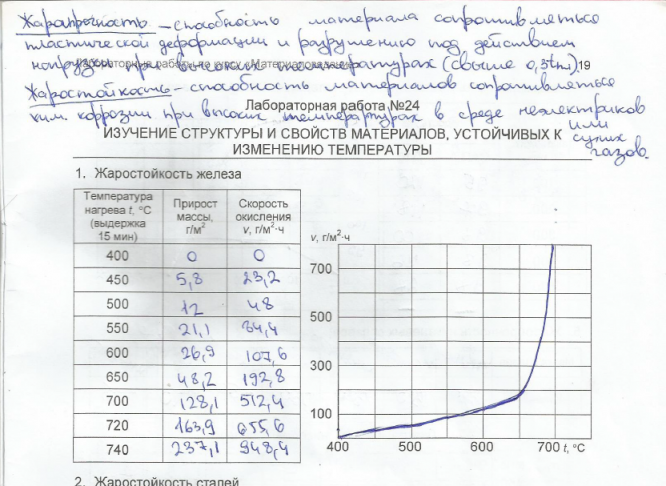 Жаропрочность – способность материала сопротивляться
пластической деформации и разрушению под действием
нагрузок при высоких температурах (свыше 0,3tпл)
Лабораторные работы по курсу «Материаловедение» 19
Жаростойкость – способность материалов сопротивляться
хим. коррозии при высоких температурах в среде неэлектриков
или
сухих
газов.
Лабораторная работа №24
ИЗУЧЕНИЕ СТРУКТУРЫ И СВОЙСТВ МАТЕРИАЛОВ, УСТОЙЧИВЫХ К
ИЗМЕНЕНИЮ ТЕМПЕРАТУРЫ
1. Жаростойкость железа
Температура нагрева t, °C (выдержка 15 мин) Прирост массы, г/м² Скорость окисления v, г/м²·ч
400 0 0
450 5,8 23,2
500 12 48
550 21,1 84,4
600 26,9 107,6
650 48,2 192,8
700 128,1 512,4
720 163,9 655,6
740 237,1 948,4
v, г/м²·ч
700
500
300
100
400 500 600 700 t, °C
2. Жаростойкость сталей